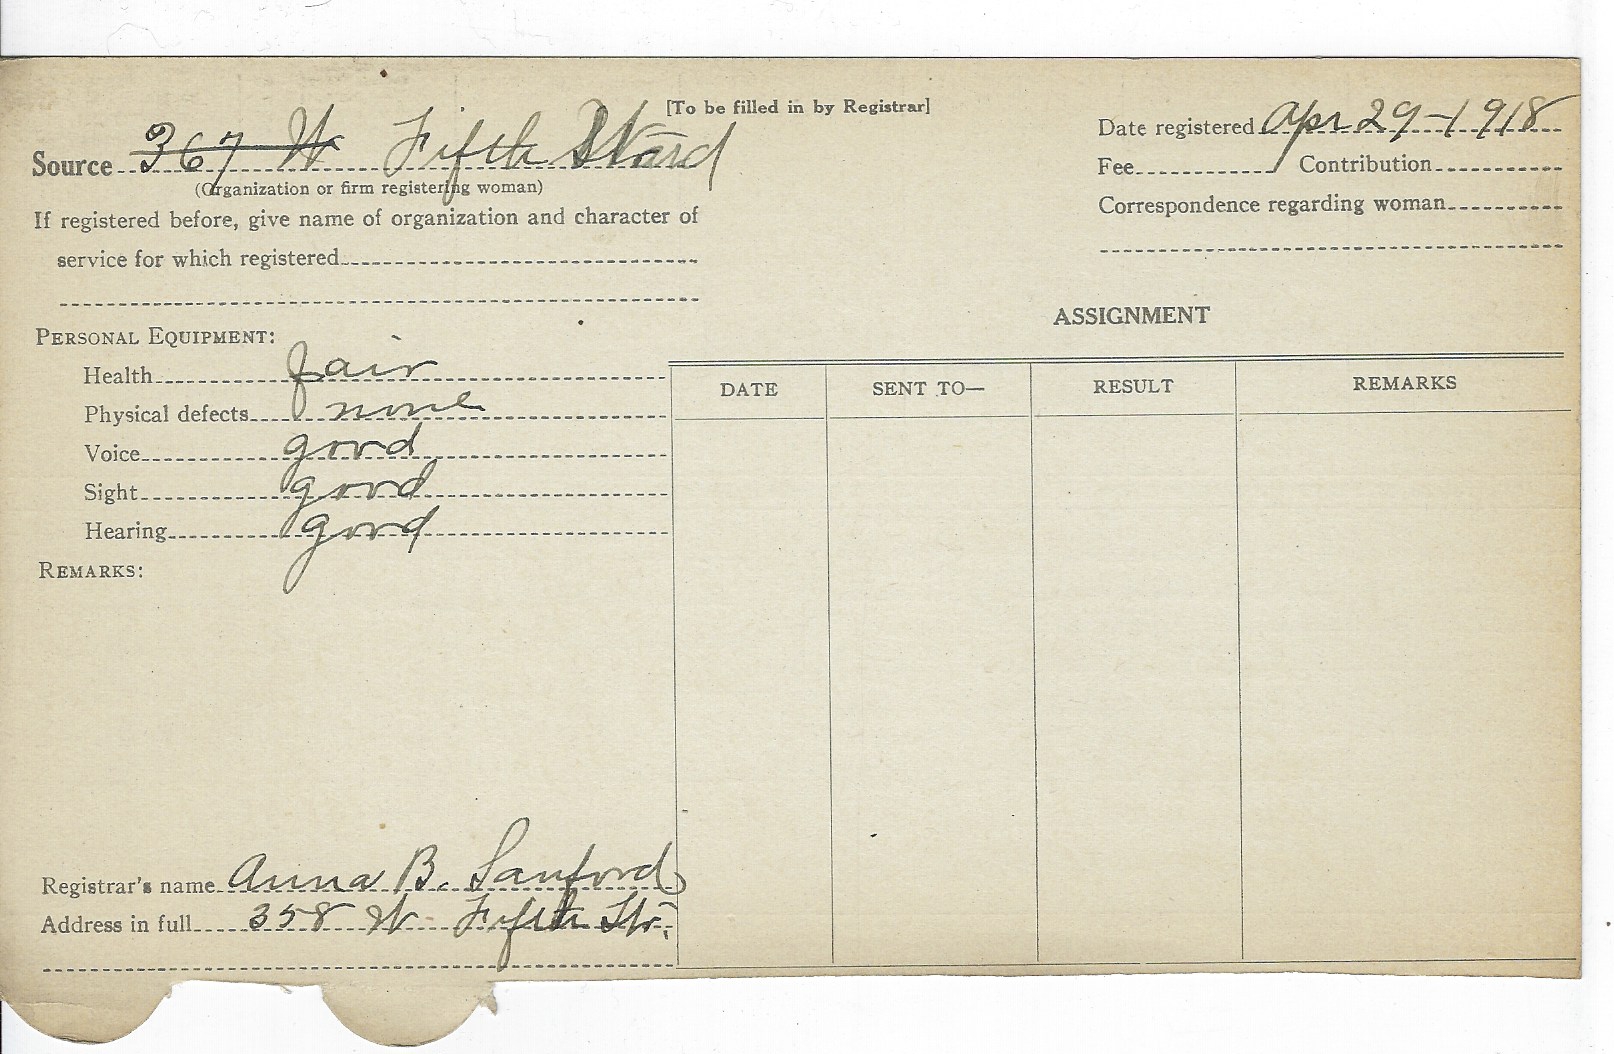 [To be filled in by Registrar]
Source 367 W Fifth Ward
(Organization or firm registering woman)
If registered before, give name of organization and character of
service for which registered
Date registered Apr 29-1918
Fee Contribution
Correspondence regarding woman
PERSONAL EQUIPMENT:
Health fair
Physical defects none
Voice good
Sight good
Hearing good
REMARKS:
ASSIGNMENT
DATE SENT TO— RESULT REMARKS
Registrar's name Anna B. Sanford
Address in full 358 W. Fifth Str.